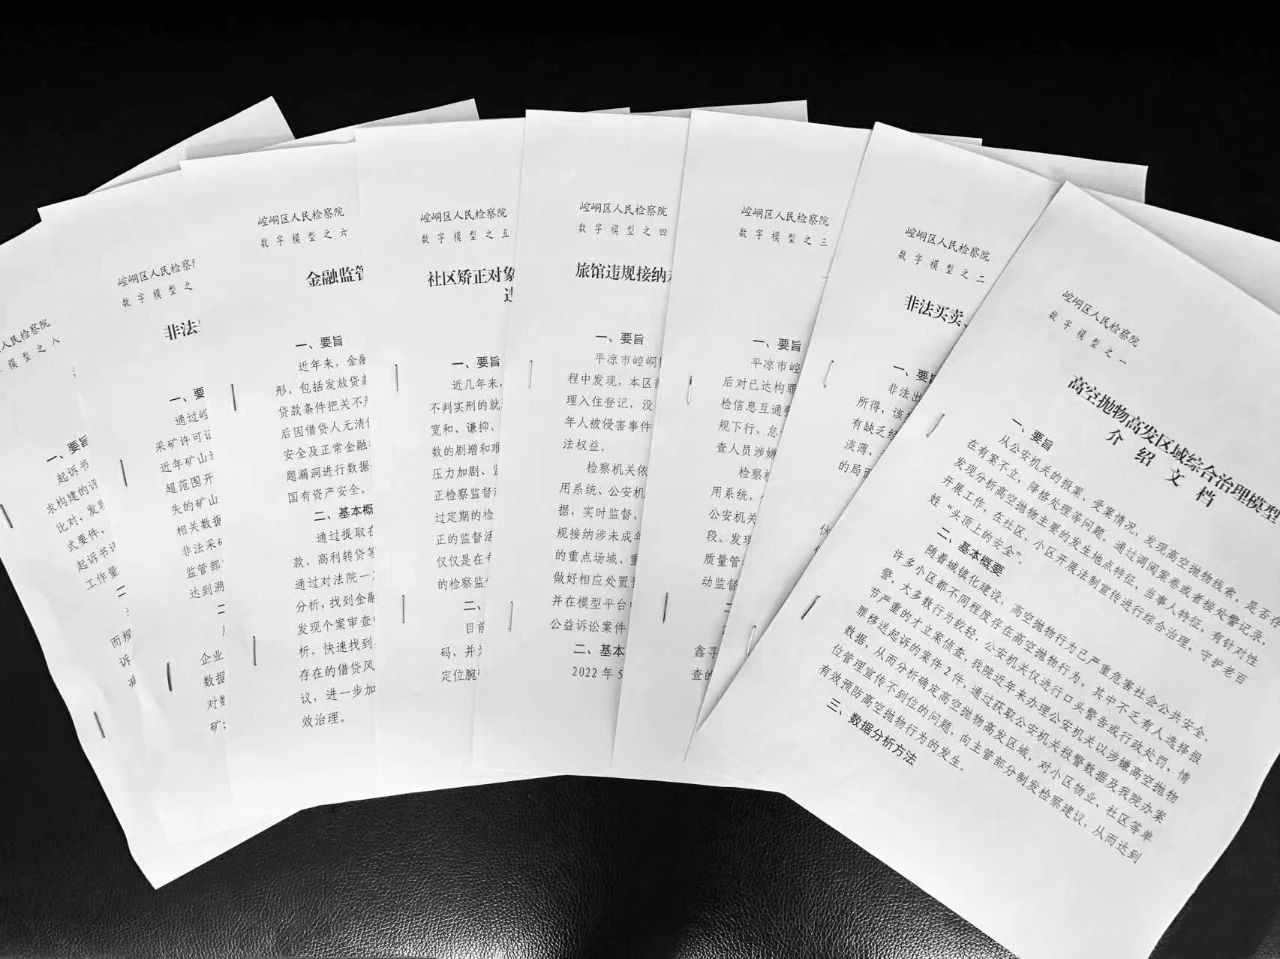 崆峒区人民检察院
数字模型之一
高空抛物高发区域综合治理模型
介绍文档
一、要旨
从公安机关的报案、受案情况，发现高空抛物线索，是否存
在有案不立，降格处理等问题。通过调阅案卷或者接处警记录，
发现分析高空抛物主要的发生地点特征，当事人特征，有针对性
开展工作，在社区、小区开展法制宣传进行综合治理，守护老百
姓“头顶上的安全”。
二、基本概要
随着城镇化建设，高空抛物行为已严重危害社会公共安全，
许多小区都不同程度存在高空抛物行为，其中不乏有人选择报
警，大多数行为较轻，公安机关仅进行口头警告或行政处罚，情
节严重的才立案侦查，我院近年来办理公安机关以涉嫌高空抛物
罪移送起诉的案件2件，通过获取公安机关报警数据及我院办案
数据，从而分析确定高空抛物高发区域，对小区物业、社区等单
位管理宣传不到位的问题，向主管部分制发检察建议，从而达到
有效预防高空抛物行为的发生。
三、数据分析方法
崆峒区人民检察院
数字模型之二
非法买卖、
一、要旨
非法出
所得，该
有缺乏经
淡薄，
的局面
崆峒区人民检察院
数字模型之三
一、要旨
平凉市崆
后对已达构罪
检信息互通
规下行，怠
查人员涉嫌
检察机
用系统、
公安机关
段。发现
质量管
动监督
崆峒区人民检察院
数字模型之四
旅馆违规接纳
一、要旨
平凉市崆峒
程中发现，本区
理入住登记，没
年人被侵害事件
法权益。
检察机关依
用系统、公安机
据，实时监督，
规接纳涉未成年
的重点场域、重
做好相应处置
并在模型平台
公益诉讼案件
二、基本
2022年5
崆峒区人民检察院
数字模型之五
社区矫正对象
一、要旨
近几年来，
不判实刑的就
宽和、谦抑、
数的剧增和难
压力加剧、监
正检察监督
过定期的检
正的监督
仅仅是在
的检察监
二、
目前
码，并
定位腕
崆峒区人民检察院
数字模型之六
金融监管
一、要旨
近年来，金融
形，包括发放贷款
贷款条件把关不严
后因借贷人无清
安全及正常金融
题漏洞进行数据
国有资产安全。
二、基本概
通过提取在
款、高利转贷等
通过对法院一
分析，找到金融
发现个案审查
析，快速找到
存在的借贷风
议，进一步加
效治理。
崆峒区人民检察
数字模型之
非法
一、要
通过崆
采矿许可证
近年矿山
超范围开
失的矿山
相关数据
非法采矿
监管部
达到溯
二
企业
数据
对数
矿
人民检察院
之八
一、要旨
起诉书
求构建的
比对，发现
式要件、
起诉书
工作量
二
而
诉